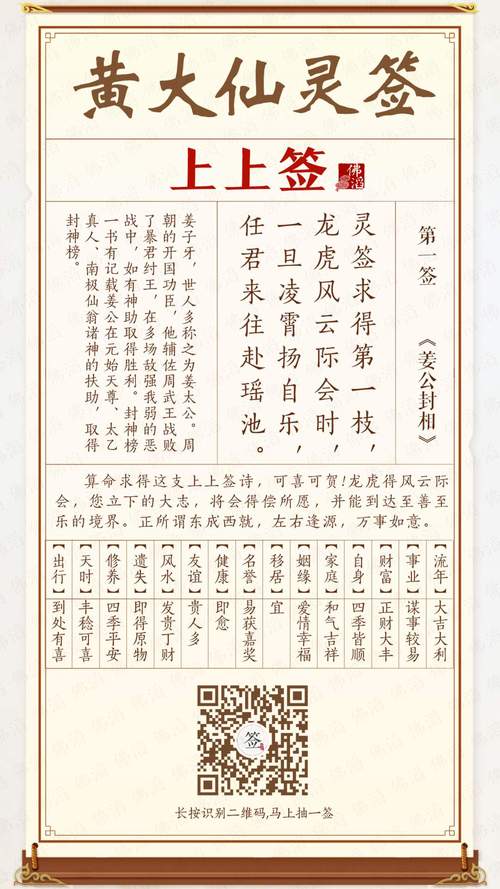 黄大仙灵签
上上签
佛滔
第一签 《姜公封相》
灵签求得第一枝，
龙虎风云际会时，
一旦凌霄扬自乐，
任君来往赴瑶池。
姜子牙，世人多称之为姜太公。周
朝的开国功臣，他辅佐周武王战败
了暴君纣王，在多场敌强我弱的恶
战中，如有神助取得胜利。封神榜
一书有记载姜公在元始天尊、太乙
真人、南极仙翁诸神的扶助，取得
封神榜。
算命求得这支上上签诗，可喜可贺!龙虎得风云际
会，您立下的大志，将会得偿所愿，并能到达至善至
乐的境界。正所谓东成西就，左右逢源，万事如意。
【流年】大吉大利
【事业】谋事较易
【财富】正财大丰
【自身】四季皆顺
【家庭】和气吉祥
【姻缘】爱情幸福
【移居】宜
【名誉】易获嘉奖
【健康】即愈
【友谊】贵人多
【风水】发贵丁财
【遗失】即得原物
【修养】四季平安
【天时】丰稔可喜
【出行】到处有喜
签
长按识别二维码,马上抽一签